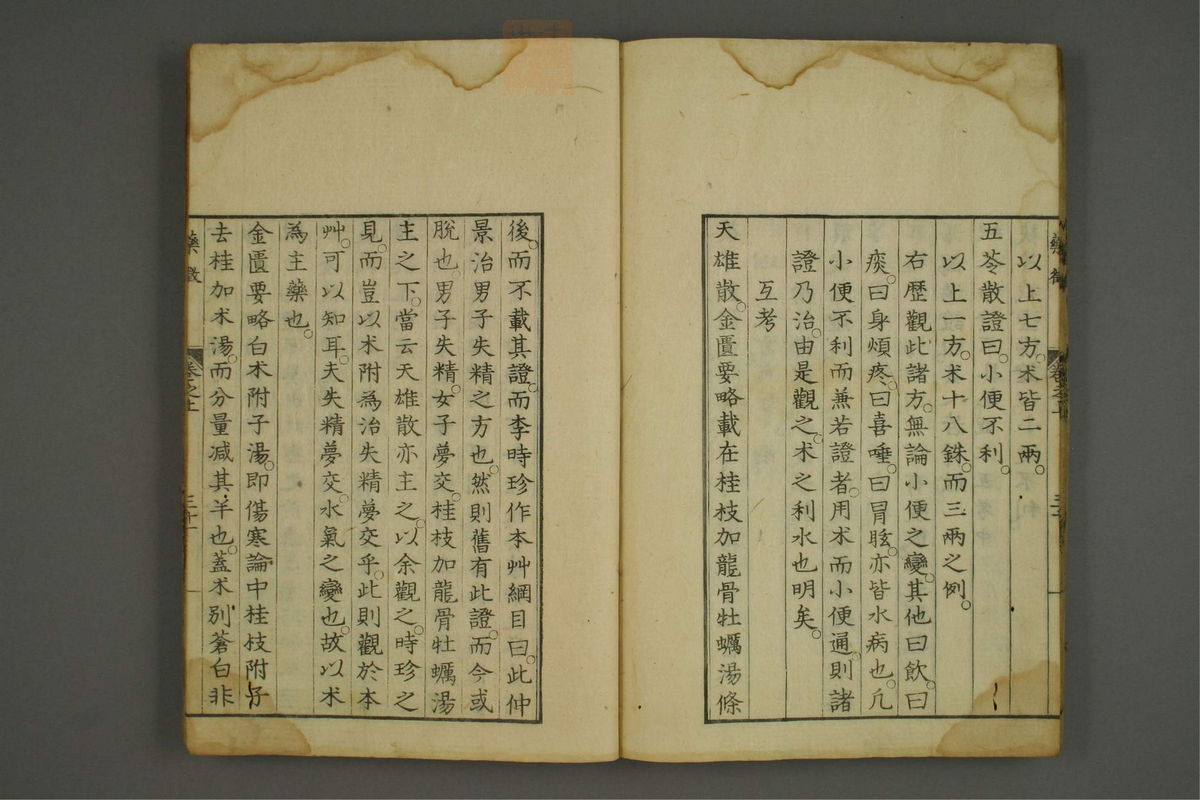 以上七方。朮皆二兩。
五苓散證曰。小便不利。
以上一方。朮十八銖。而三兩之例。
右歷觀此諸方。無論小便之變。其他曰飲。曰
痰。曰身煩疼。曰喜唾。曰冒眩。亦皆水病也。凡
小便不利而兼若證者。用朮而小便通。則諸
證乃治。由是觀之。朮之利水也明矣。
互考
天雄散。金匱要略載在桂枝加龍骨牡蠣湯條
後。而不載其證。而李時珍作本艸綱目曰。此仲
景治男子失精之方也。然則舊有此證。而今或
脫也。男子失精。女子夢交。桂枝加龍骨牡蠣湯
主之下。當云天雄散亦主之。以余觀之。時珍之
見。而豈以朮附為治失精夢交乎。此則觀於本
艸。可以知耳。夫失精夢交。水氣之變也。故以朮
為主藥也。
金匱要略白朮附子湯。即傷寒論中桂枝附子
去桂加朮湯。而分量减其半也。蓋朮別蒼白非
藥徵
卷之上
三十一